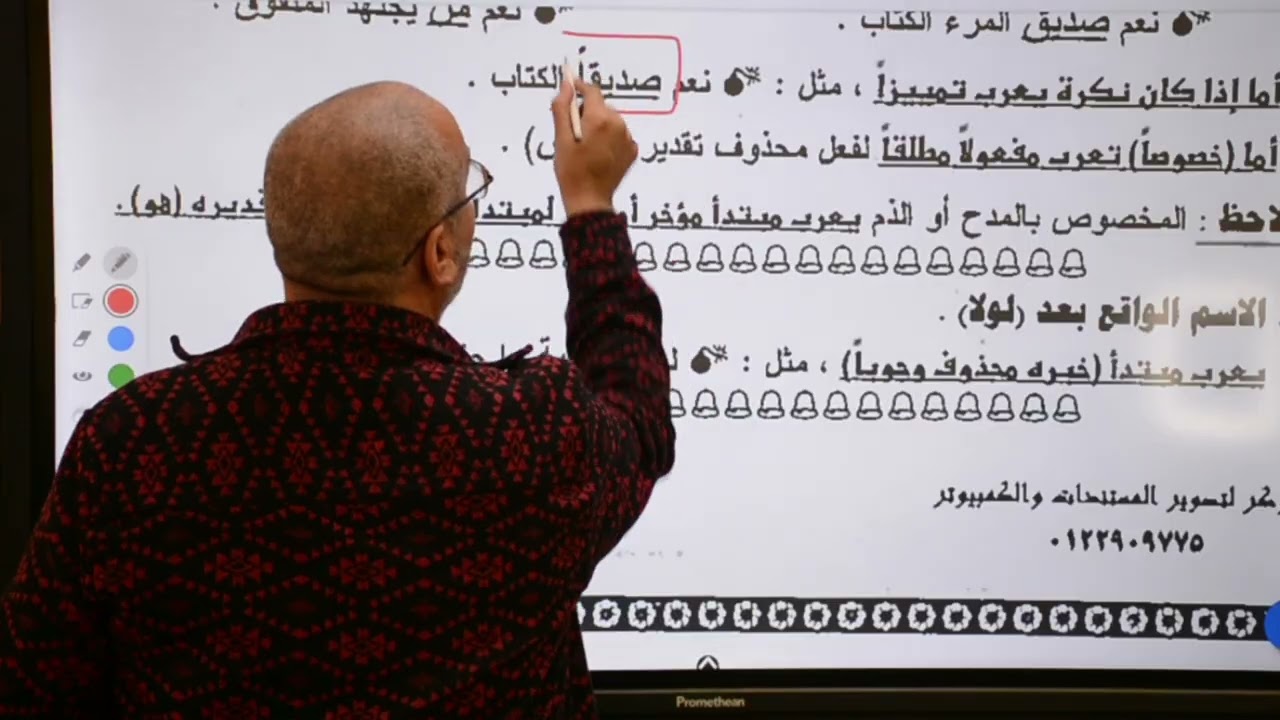 نعم صديق المرء الكتاب . نعم من يجتهد المتفوق .
أما إذا كان نكرة يعرب تمييزاً ، مثل : نعم صديقاً الكتاب .
أما (خصوصاً) تعرب مفعولاً مطلقاً لفعل محذوف
لاحظ : المخصوص بالمدح أو الذم يعرب مبتدأ مؤخر لمبتدأ تقديره (هو).
الاسم الواقع بعد (لولا) .
يعرب مبتدأ (خبره محذوف وجوباً) ، مثل :
لتصوير المستندات والكمبيوتر
٠١٢٢٩٠٩٧٧٥
Promethean